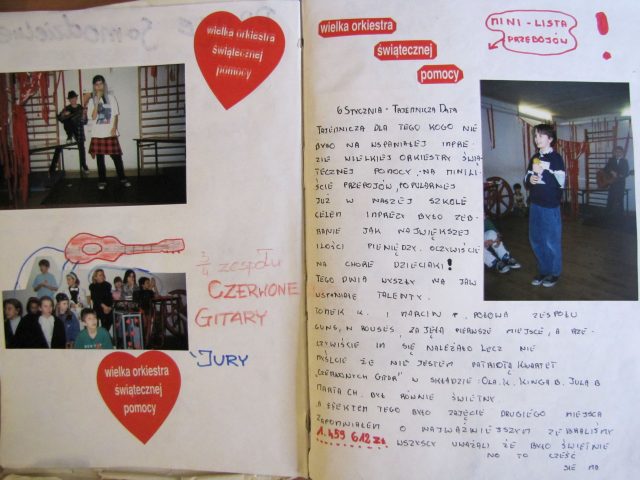 wielka orkiestra
świątecznej
pomocy
3/4 zespołu
CZERWONE
GITARY
JURY
wielka orkiestra
świątecznej
pomocy
wielka orkiestra
świątecznej
pomocy
MINI-LISTA
PRZEBOJÓW
!
6 STYCZNIA - TAJEMNICZA DATA
TAJEMNICZA DLA TEGO KOGO NIE
BYŁO NA WSPANIAŁEJ IMPRE-
ZIE WIELKIEJ ORKIESTRY ŚWIĄ-
TECZNEJ POMOCY, NA MINILI-
ŚCIE PRZEBOJÓW, POPULARNEJ
JUŻ W NASZEJ SZKOLE
CELEM IMPREZY BYŁO ZEB-
RANIE JAK NAJWIĘKSZEJ
ILOŚCI PIENIĘDZY. OCZYWIŚCIE
NA CHORE DZIECIAKI!
TEGO DNIA WYSZŁY NA JAW
WSPANIAŁE TALENTY.
TOMEK K. I MARCIN P. POŁOWA ZESPOŁU
GUNS, N ROUSES, ZAJĘŁA PIERWSZE MIEJSCE, A RZE-
CZYWIŚCIE IM SIĘ NALEŻAŁO LECZ NIE
MYŚLCIE ŻE NIE JESTEM PATRIOTĄ KWARTET
"CZERWONYCH GITAR" W SKŁADZIE: OLA. K. KINGA B. JULA B
MARTA CH. BYŁ RÓWNIE ŚWIETNY.
A EFEKTEM TEGO BYŁO ZAJĘCIE DRUGIEGO MIEJSCA
ZAPOMNIAŁEM O NAJWAŻNIEJSZYM ZEBRALIŚMY
1.459 612 ZŁ WSZYSCY UWAŻALI ŻE BYŁO ŚWIETNIE
NO TO CZEŚĆ